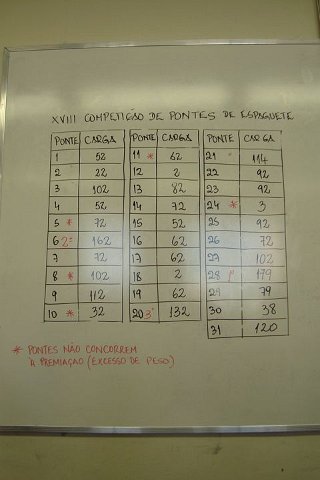 XVIII COMPETIÇÃO DE PONTES DE ESPAGUETE
PONTE CARGA PONTE CARGA PONTE CARGA
1 52 11 * 62 21 114
2 22 12 2 22 92
3 102 13 82 23 92
4 52 14 72 24 * 3
5 * 72 15 52 25 92
6 2º 162 16 62 26 72
7 72 17 62 27 102
8 * 102 18 2 28 1º 179
9 112 19 62 29 79
10 * 32 20 3º 132 30 38
31 120
* PONTES NÃO CONCORREM
À PREMIAÇÃO (EXCESSO DE PESO)